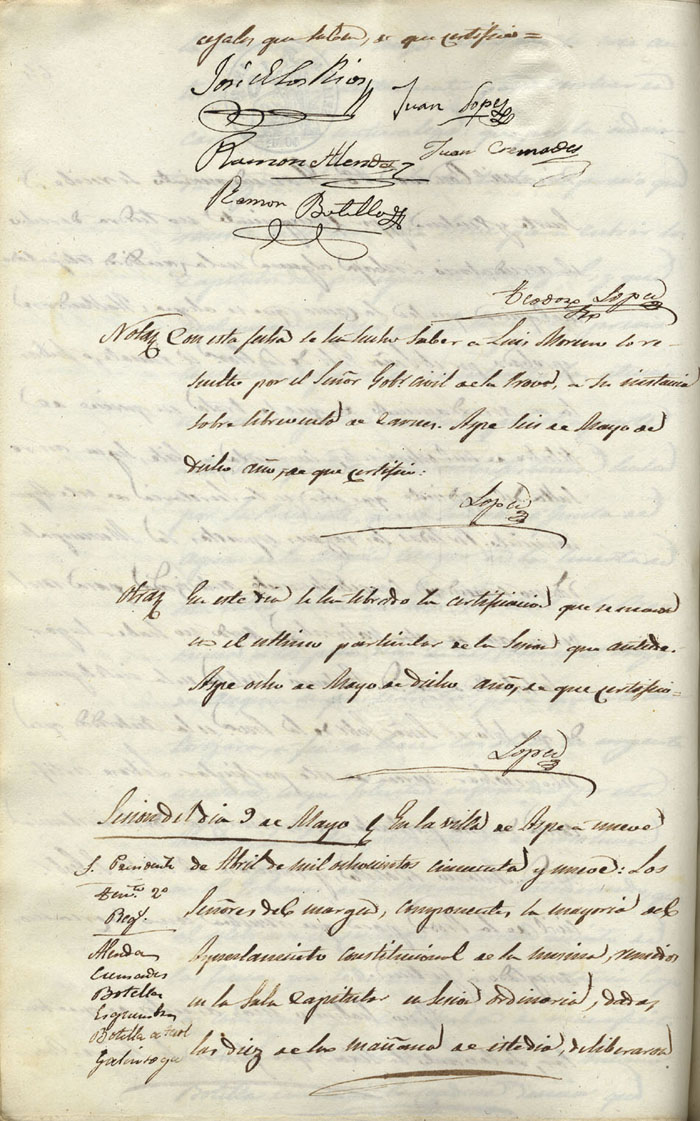 cejales que saben, de que certifico=
José de los Rios
Juan Lopez
Ramon Alenda
Juan Cremades
Ramon Botella
Teodoro Lopez
Nota Con esta fecha se ha hecho saber a Luis Moreno lo re-
suelto por el Señor Gobr. civil de la Prova, a su instancia
sobre libramiento de
Aspe seis de Mayo de
dicho año, de que certifico:
Lopez
Otra En este dia se ha librado la certificacion que se manda
en el ultimo particular de la Sesion que antecede.
Aspe ocho de Mayo de dicho año, de que certifico=
Lopez
Sesion del dia 9 de Mayo En la villa de Aspe a nueve
S. Presidente
de Abril de mil ochocientos cincuenta y nueve: Los
Tente. 2º
Regr.
Señores del margen, componentes la mayoria del
Alenda
Ayuntamiento constitucional de la misma, reunidos
Cremades
Botella
en la Sala Capitular en sesion ordinaria, dadas
Botella
las diez de la mañana de este dia, deliberaron